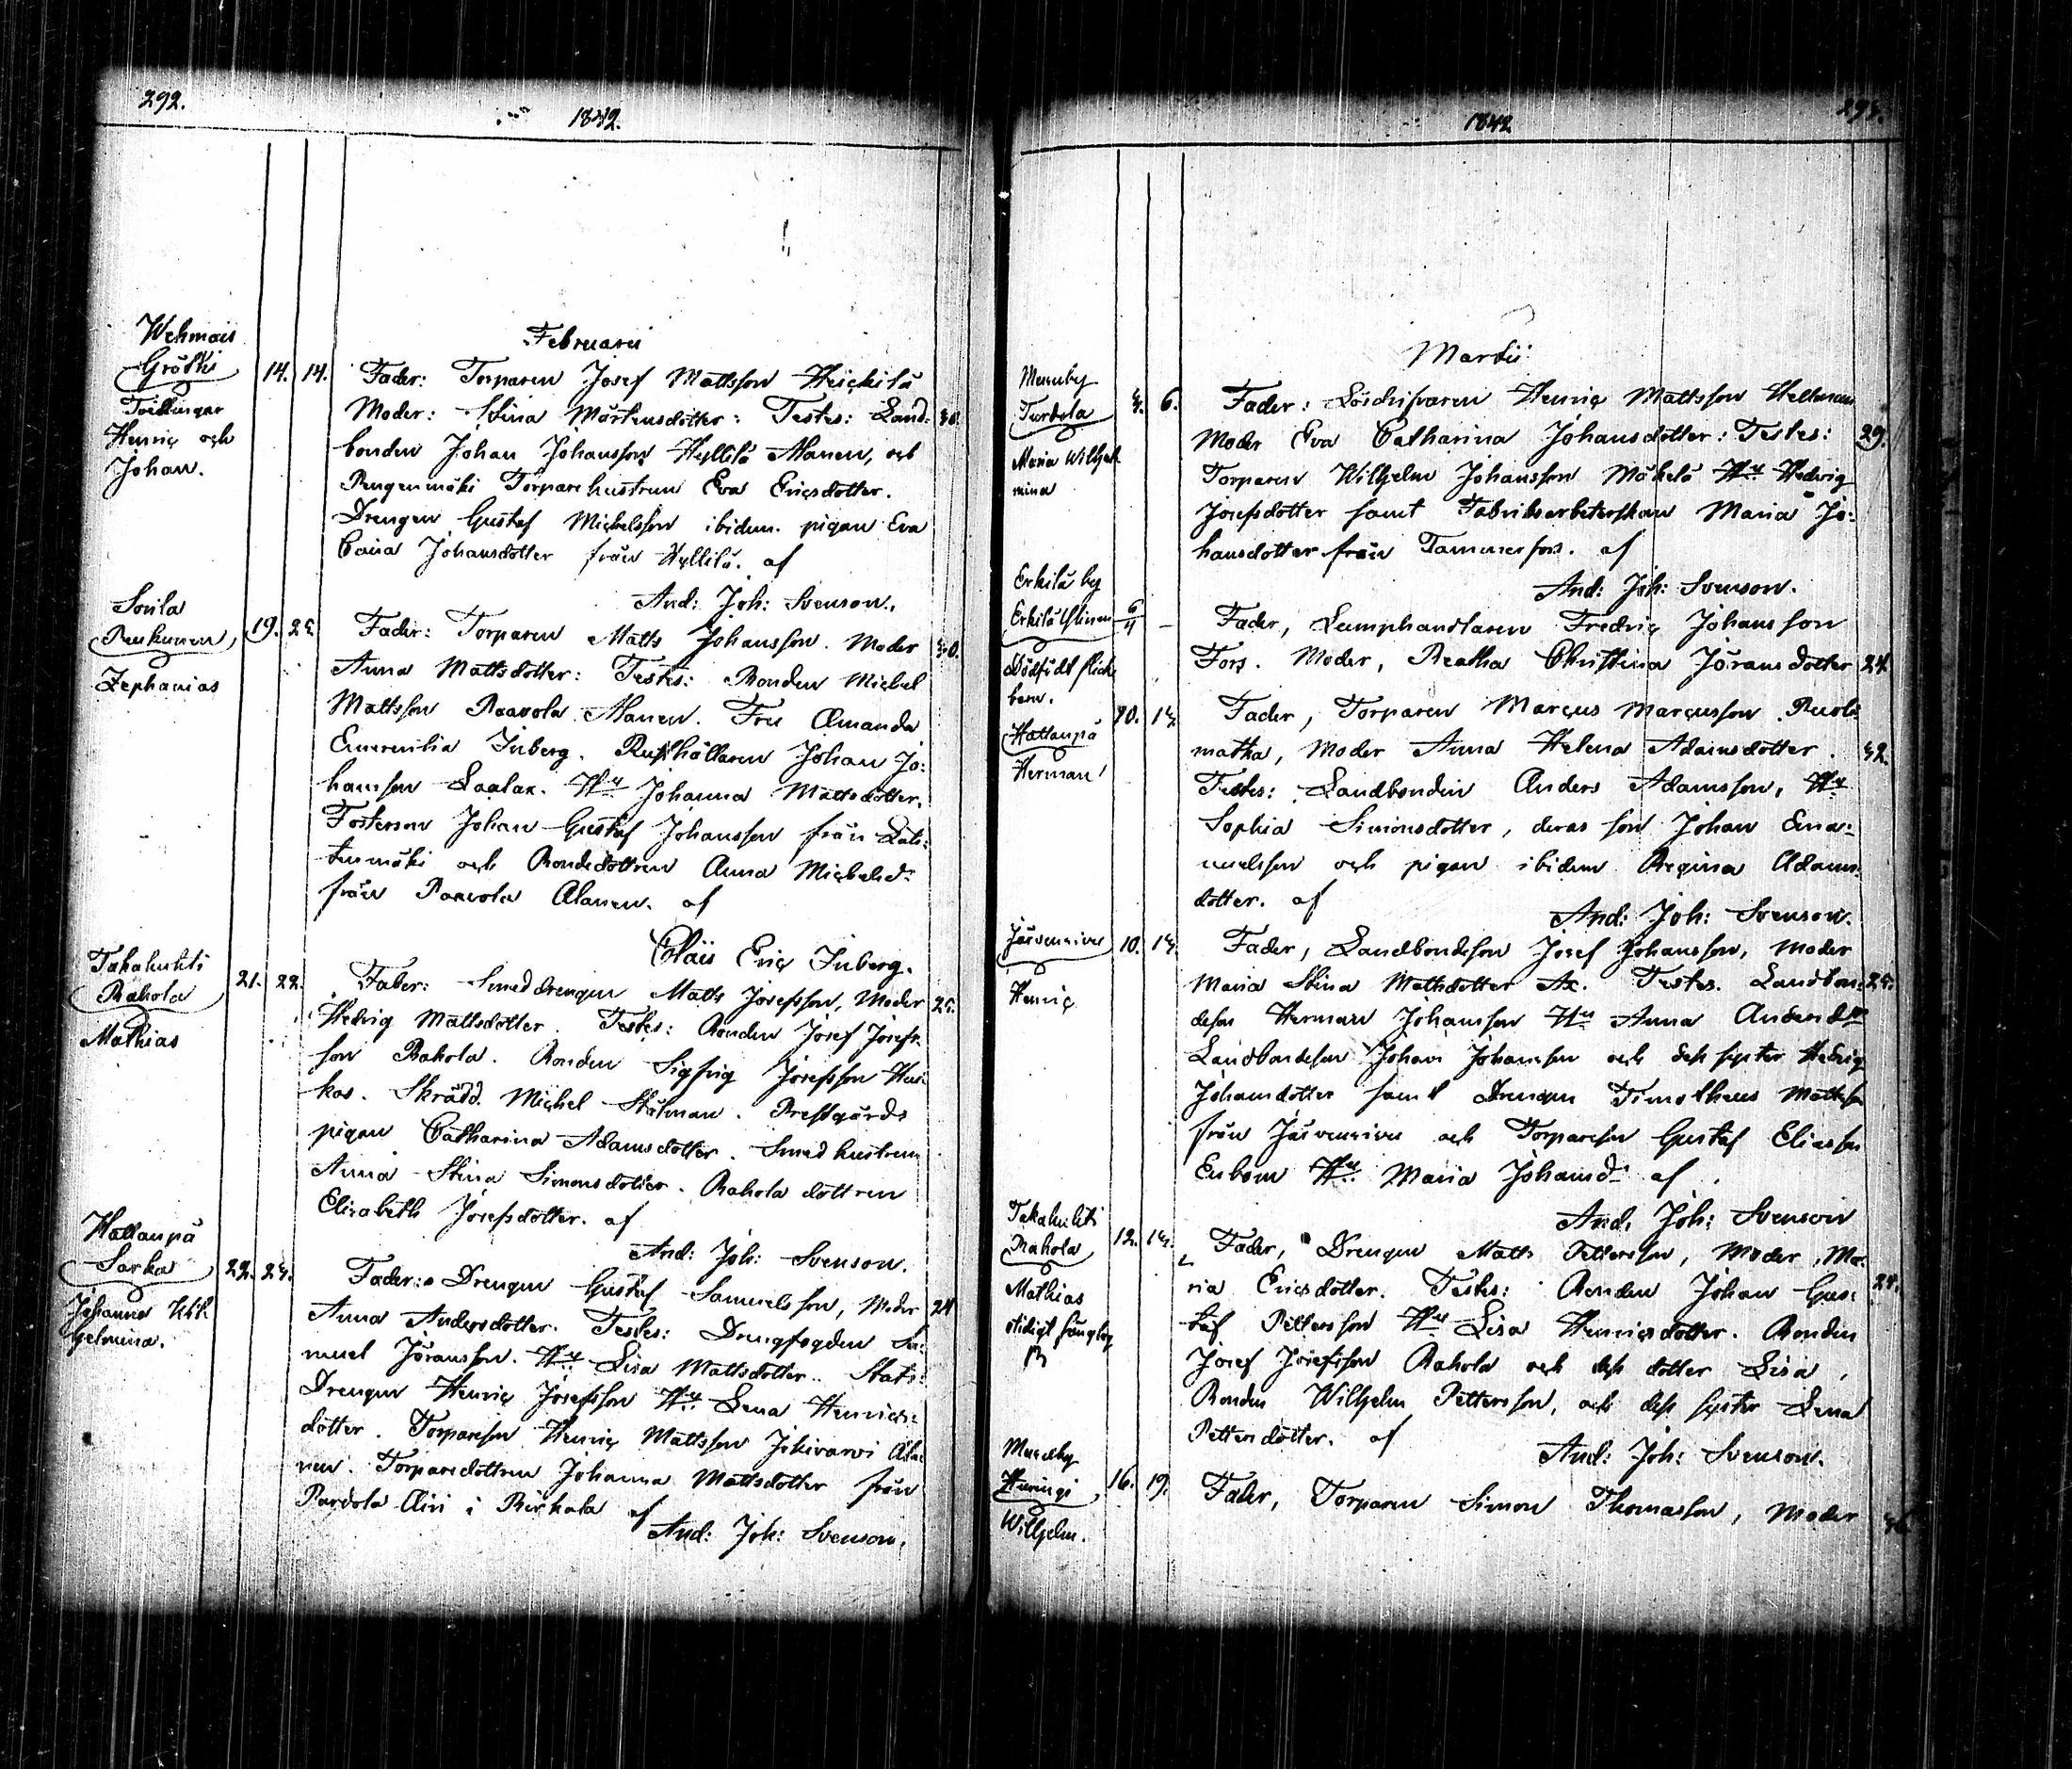 292.
1842.
Februarii
Wehmais
Gröthi
Tvillingar
Henric och
Johan.
14. 14. Fader: Torparen Josef Mattsson Heickilä
Moder: Stina Mårtensdotter: Testes: Land-
bonden Johan Johansson Hyllilä Alanen, och
Torparehustrun Eva Ericsdotter.
Drengen Gustaf Mickelsson ibidem. pigan Eva
Caisa Johansdotter från Hyllilä. af
And: Joh: Svenson.
Sorila
Penkunen,
Zephanias
19. Fader: Torparen Matts Johansson. Moder
Anna Mattsdotter: Testes: Bonden Michel
Mattsson Paavola Alanen. Fru Amanda
Emerentia Inberg. Rusthållaren Johan Jo:
hansson Laalax. Hu Johanna Mattsdotter.
Fosterson Johan Gustaf Johansson från
och Bondedottren Anna Michelsdr
från Paavola Alanen. af
Clais Eric Inberg.
Takahuhti
Rahola
Mathias
21. 22. Fader: Smeddrengen Matts Josefsson, Moder 25.
Hedvig Mattsdotter. Testes: Bonden Josef Josefs
son Rahola. Bonden Sigfrig Josefsson
Skrädd. Michel Stålman. Prestgårds
pigan Catharina Adamsdotter. Smedhustrun
Anna Stina Simonsdotter. Rahola dottren
Elisabeth Josefsdotter. af
And: Joh: Svenson.
Hattanpä
Sarka
Johanna Wil
helmina.
22. Fader: Drengen Gustaf Samuelsson, Moder 24
Anna Andersdotter. Testes: Drengfogden Sa:
muel Jöransson. Hu Lisa Mattsdotter. Stats
Drengen Henric Josefsson Hu Lena Henrics:
dotter. Torpareson Henric Mattsson Jokivarvi Ala
nen. Torparedottren Johanna Mattsdotter från
i Birkala af
And: Joh: Svenson.
1842
Martii
Messuby
Turtola
Maria Wilhel
mina
6. Fader: Henric Mattsson Hellman
Moder Eva Catharina Johansdotter: Testes: 29.
Torparen Wilhelm Johansson Mäkelä Hu Hedvig
Josefsdotter samt Fabriksarbeterskan Maria Jo:
hansdotter från Tammerfors. af
And: Joh: Svenson.
Erkilä by
Dödfödt flicke
barn.
Fader, Lumphandlaren Fredric Johansson
Fors. Moder, Beatha Christina Jöransdotter 24.
Hattanpä
Herman
10. Fader, Torparen Marcus Marcusson
Moder Anna Helena Adamsdotter.
Testes: Landbonden Anders Adamsson, Hu
Sophia Simonsdotter, deras son Johan Ema:
nuelsson och pigan ibidem Regina Adams:
dotter. af
And: Joh: Svenson.
Järvensivu
Henric
10. Fader, Landbondeson Josef Johansson, Moder
Maria Stina Mattsdotter Ax. Testes. Landbon:
deson Herman Johansson Hu Anna Andersdr
Landbondeson Johan Johansson och dess syster Hedvig
Johansdotter samt Drengen Timotheus Mattsson
från Järvensivu och Torpareson Gustaf Eliasson
Enbom Hu Maria Johansdr af
And: Joh: Svenson
Takahuhti
Rahola
Mathias
12. Fader, Drengen Matts Pettersson, Moder, Ma:
ria Ericsdotter. Testes: Bonden Johan Gus:
taf Pettersson Hu Lisa Henricsdotter. Bonden
Josef Josefsson Rahola och dess dotter Lisa,
Bonden Wilhelm Pettersson, och dess syster Lena
Pettersdotter. af
And: Joh: Svenson.
Messuby
Wilhelm.
16. 19. Fader, Torparen Simon Thomasson, Moder